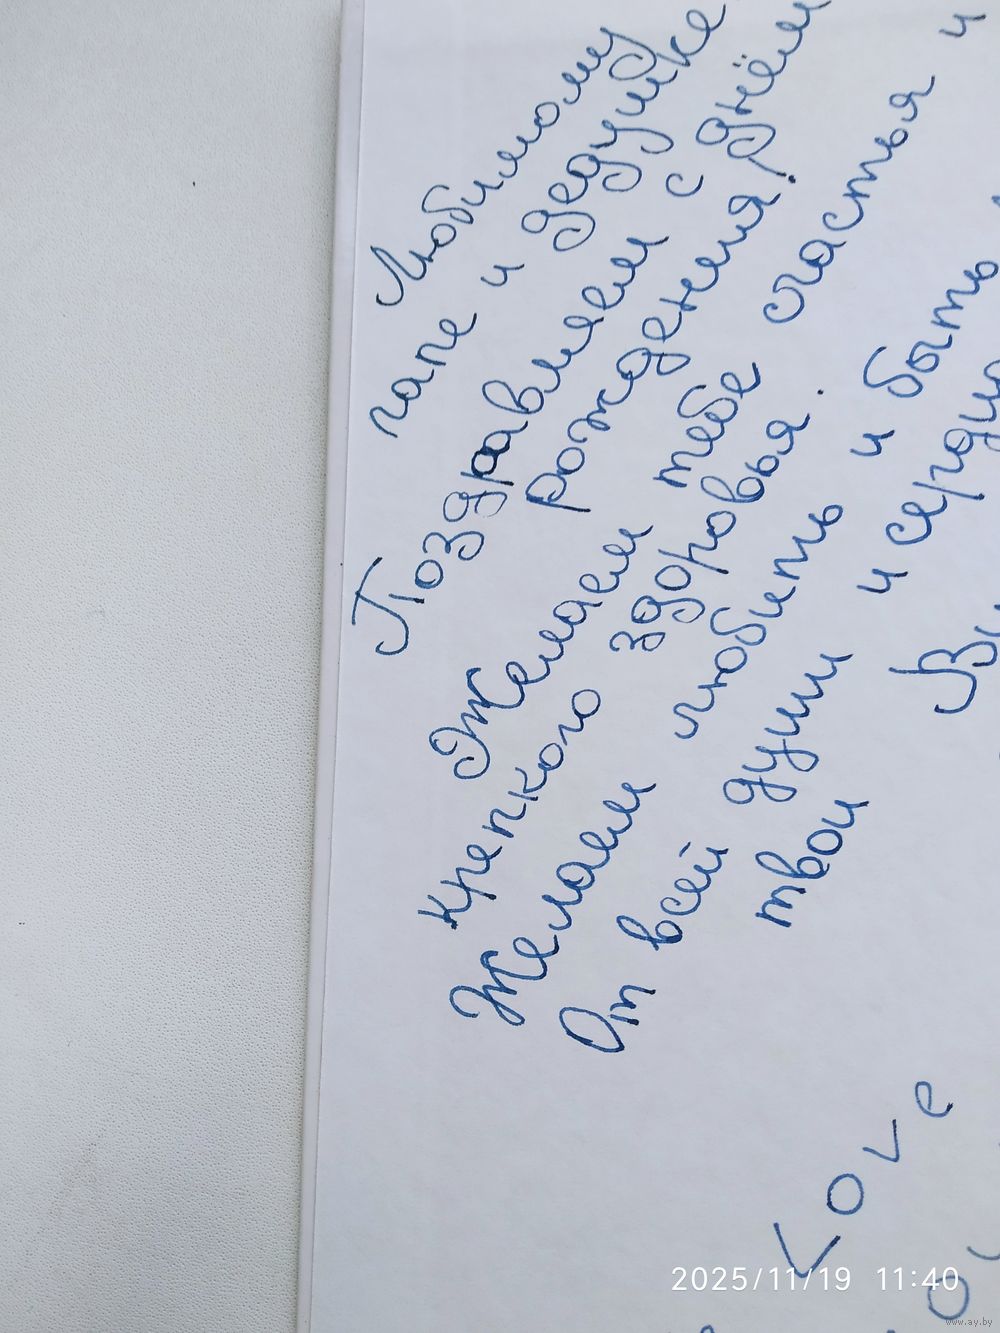 Любимому
папе и дедушке
Поздравляем с днём
рождения!
Желаем тебе счастья и
крепкого здоровья.
Желаем любить и быть
От всей души и сердца
твои
Love
2025/11/19 11:40
www.ay.by